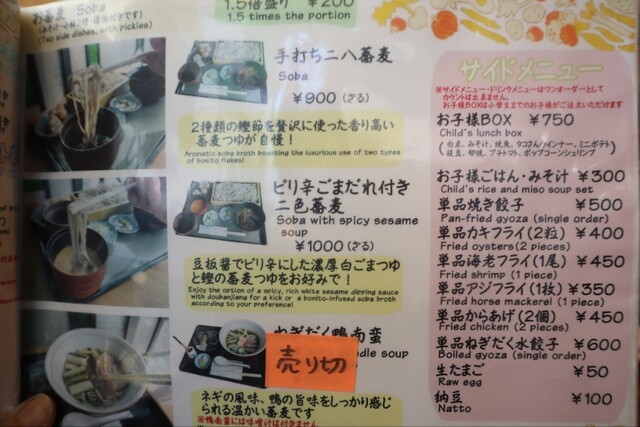 お蕎麦 Soba
(Two side dishes, with pickles)
1.5倍盛り ¥200
1.5 times the portion
手打ち二八蕎麦
Soba
¥900 (ざる)
2種類の鰹節を贅沢に使った香り高い
蕎麦つゆが自慢！
Aromatic soba broth boasting the luxurious use of two types
of bonito flakes!
ピリ辛ごまだれ付き
二色蕎麦
Soba with spicy sesame
soup
¥1000 (ざる)
豆板醤でピリ辛にした濃厚白ごまつゆ
と鰹の蕎麦つゆをお好みで！
Enjoy the option of a spicy, rich white sesame dipping sauce
with doubanjiang for a kick or a bonito-infused soba broth
according to your preference!
ねぎだく鴨南蛮
noodle soup
売り切
ネギの風味、鴨の旨味をしっかり感じ
られる温かい蕎麦です
※鴨南蛮には味噌汁は付きません
サイドメニュー
※サイドメニュー・ドリンクメニューはワンオーダーとして
カウントは出来ません。
お子様BOXは小学生までのお子様がご注文いただけます
お子様BOX ¥750
Child's lunch box
(白米、みそ汁、焼魚、タコさんウインナー、ミニポテト
枝豆、卵焼、プチトマト、ポップコーンシュリンプ)
お子様ごはん・みそ汁 ¥300
Child's rice and miso soup set
単品焼き餃子 ¥500
Pan-fried gyoza (single order)
単品カキフライ(2粒) ¥400
Fried oysters(2 pieces)
単品海老フライ(1尾) ¥450
Fried shrimp (1 piece)
単品アジフライ(1枚) ¥350
Fried horse mackerel (1 piece)
単品からあげ(2個) ¥450
Fried chicken (2 pieces)
単品ねぎだく水餃子 ¥600
Boiled gyoza (single order)
生たまご ¥50
Raw egg
納豆 ¥100
Natto